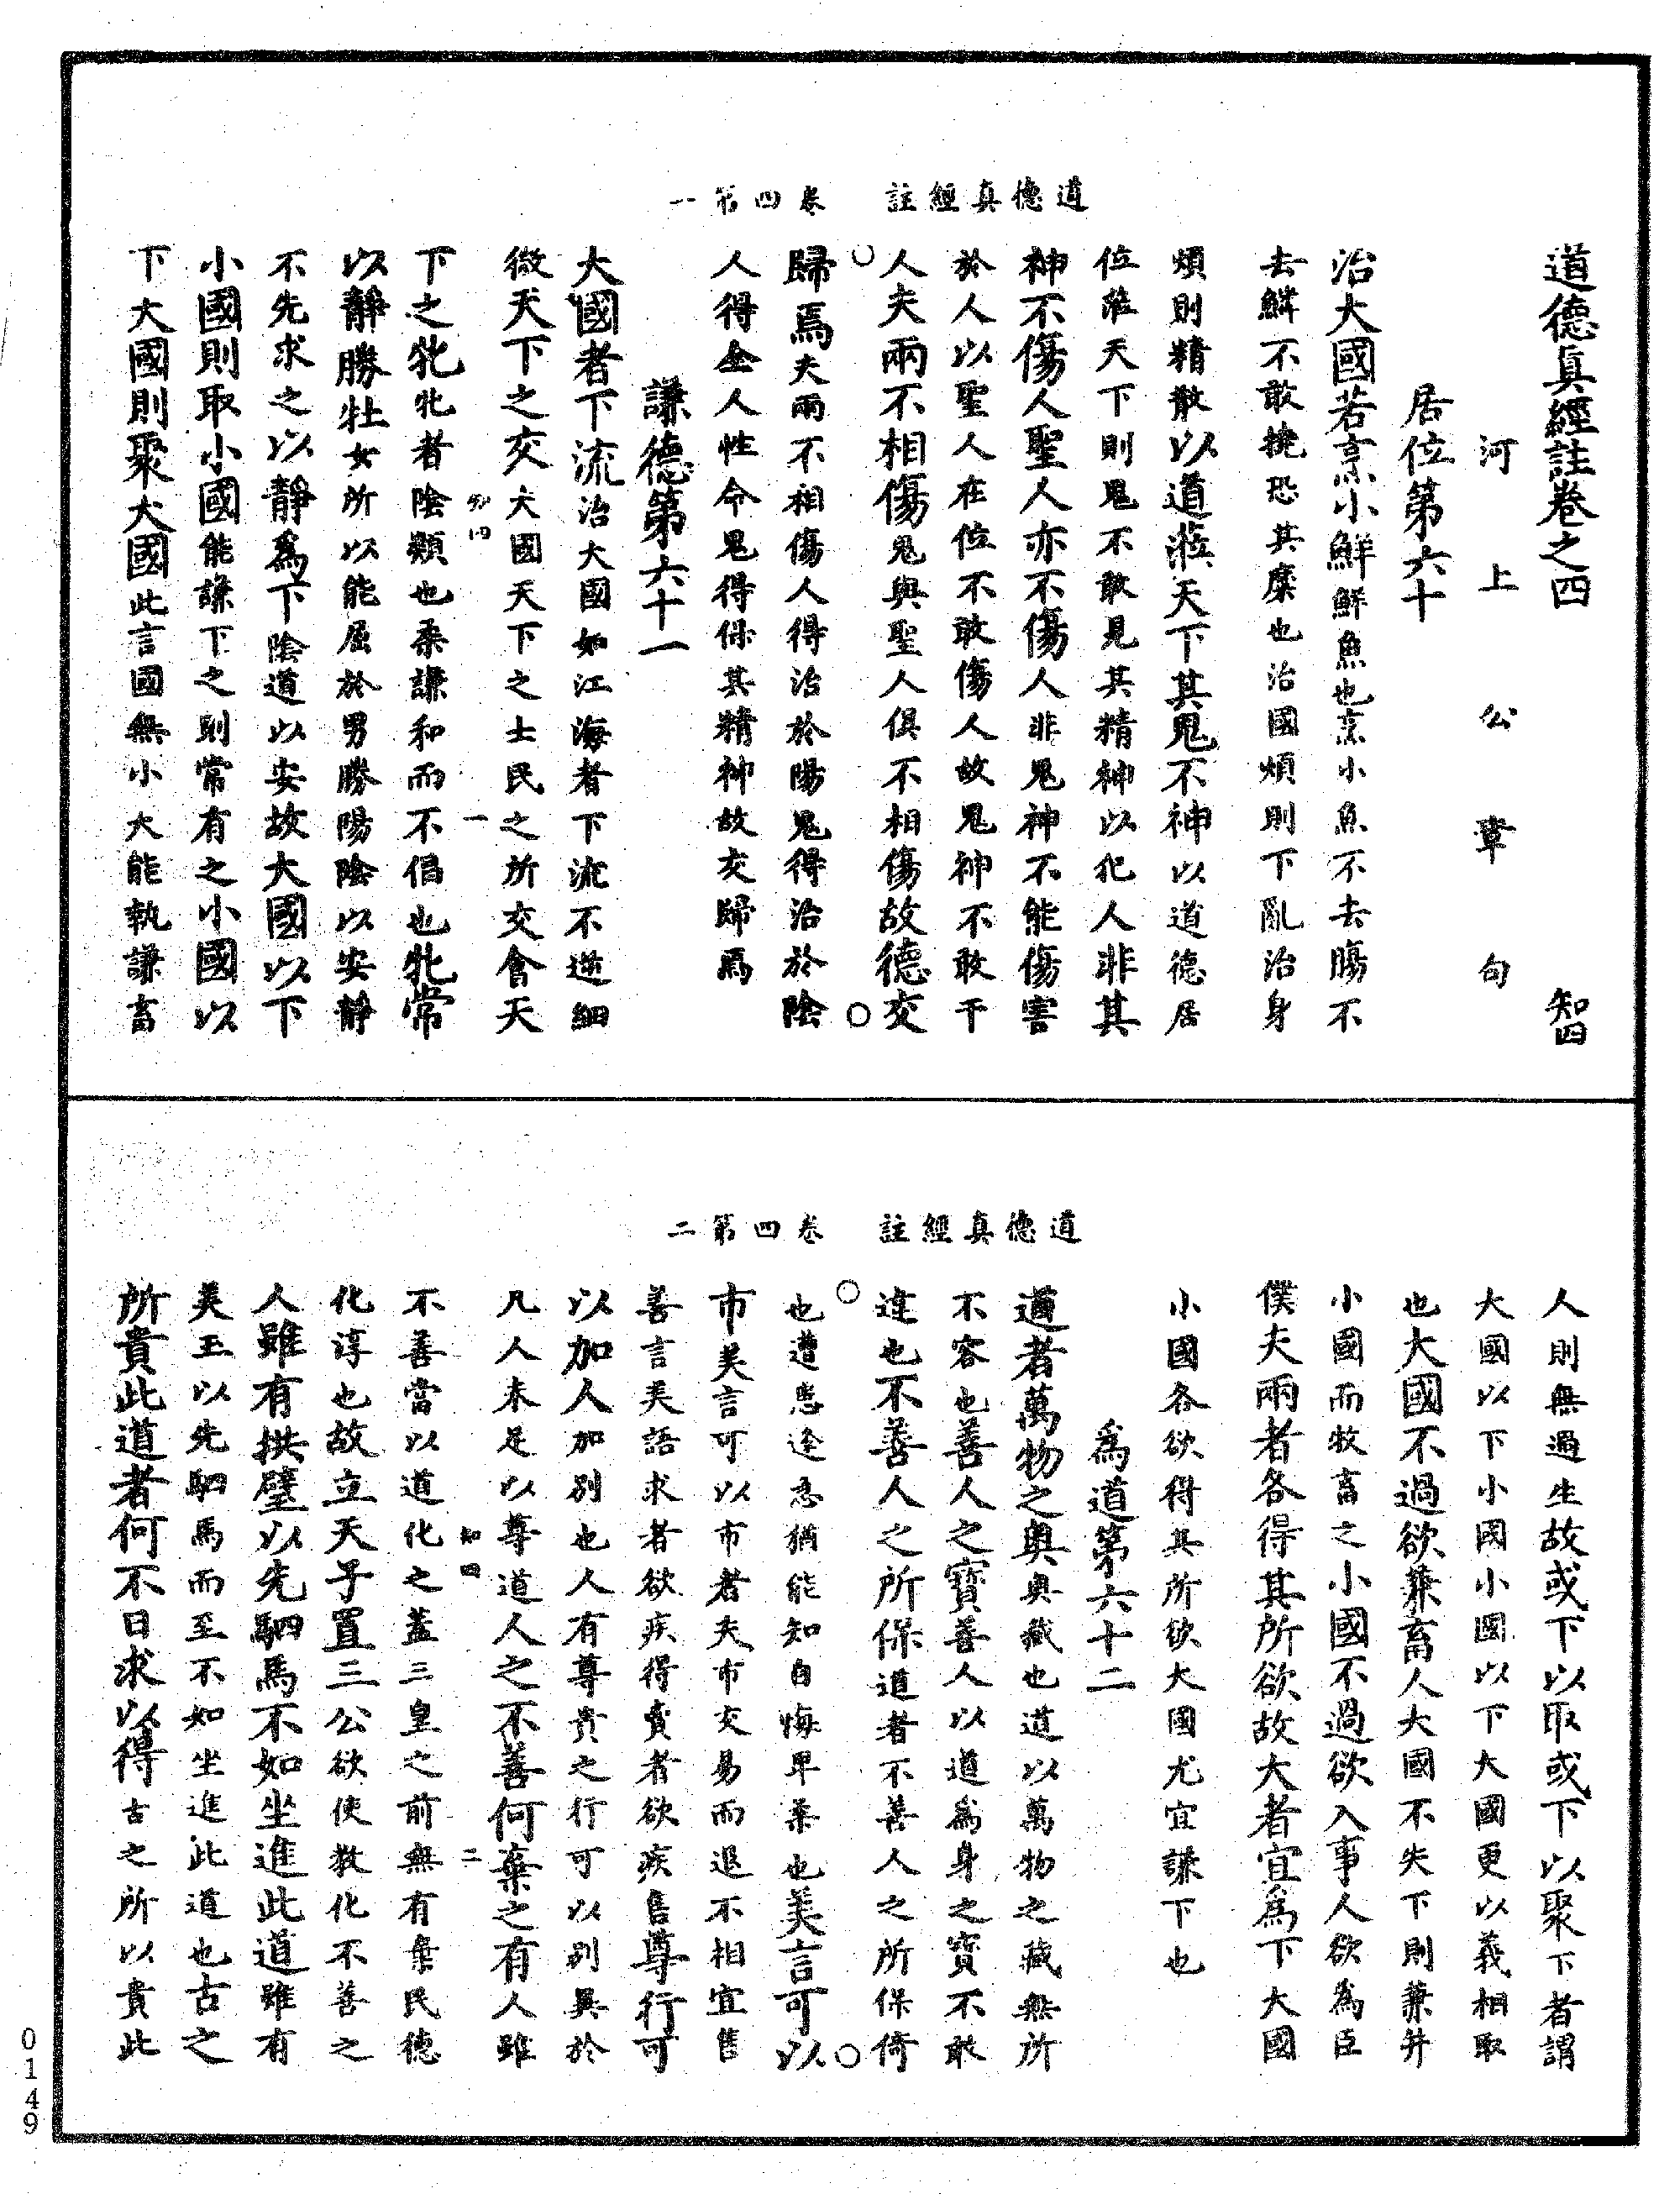 道德真經註　卷四第一
道德真經註卷之四　知四
河上公章句
居位第六十
治大國若烹小鮮鮮魚也烹小魚不去腸不
去鱗不敢撓恐其糜也治國煩則下亂治身
煩則精散以道蒞天下其鬼不神以道德居
位蒞天下則鬼不敢見其精神以犯人非其
神不傷人聖人亦不傷人非鬼神不能傷害
於人以聖人在位不敢傷人故鬼神不敢干
人夫兩不相傷鬼與聖人俱不相傷故德交
歸焉夫兩不相傷人得治於陽鬼得治於陰
人得全人性命鬼得保其精神故交歸焉
謙德第六十一
大國者下流治大國如江海者下流不逆細
微天下之交大國天下之士民之所交會天
知四　一
下之牝牝者陰類也柔謙和而不倡也牝常
以靜勝牡女所以能屈於男勝陽陰以安靜
不先求之以靜為下陰道以安故大國以下
小國則取小國能謙下之則常有之小國以
下大國則聚大國此言國無小大能執謙畜
道德真經註　卷四第二
人則無過生故或下以取或下以聚下者謂
大國以下小國小國以下大國更以義相取
也大國不過欲兼畜人大國不失下則兼并
小國而牧畜之小國不過欲入事人欲為臣
僕夫兩者各得其所欲故大者宜為下大國
小國各欲得其所欲大國尤宜謙下也
為道第六十二
道者萬物之奧奧藏也道以萬物之藏無所
不容也善人之寶善人以道為身之寶不敢
違也不善人之所保道者不善人之所保倚
也遭患逢急猶能知自悔卑柔也美言可以
市美言可以市者夫市交易而退不相宜售
善言美語求者欲疾得賣者欲疾售尊行可
以加人加別也人有尊貴之行可以別異於
凡人未足以尊道人之不善何棄之有人雖
知四　二
不善當以道化之蓋三皇之前無有棄民德
化淳也故立天子置三公欲使教化不善之
人雖有拱璧以先駟馬不如坐進此道雖有
美玉以先駟馬而至不如坐進此道也古之
所貴此道者何不日求以得古之所以貴此
0149